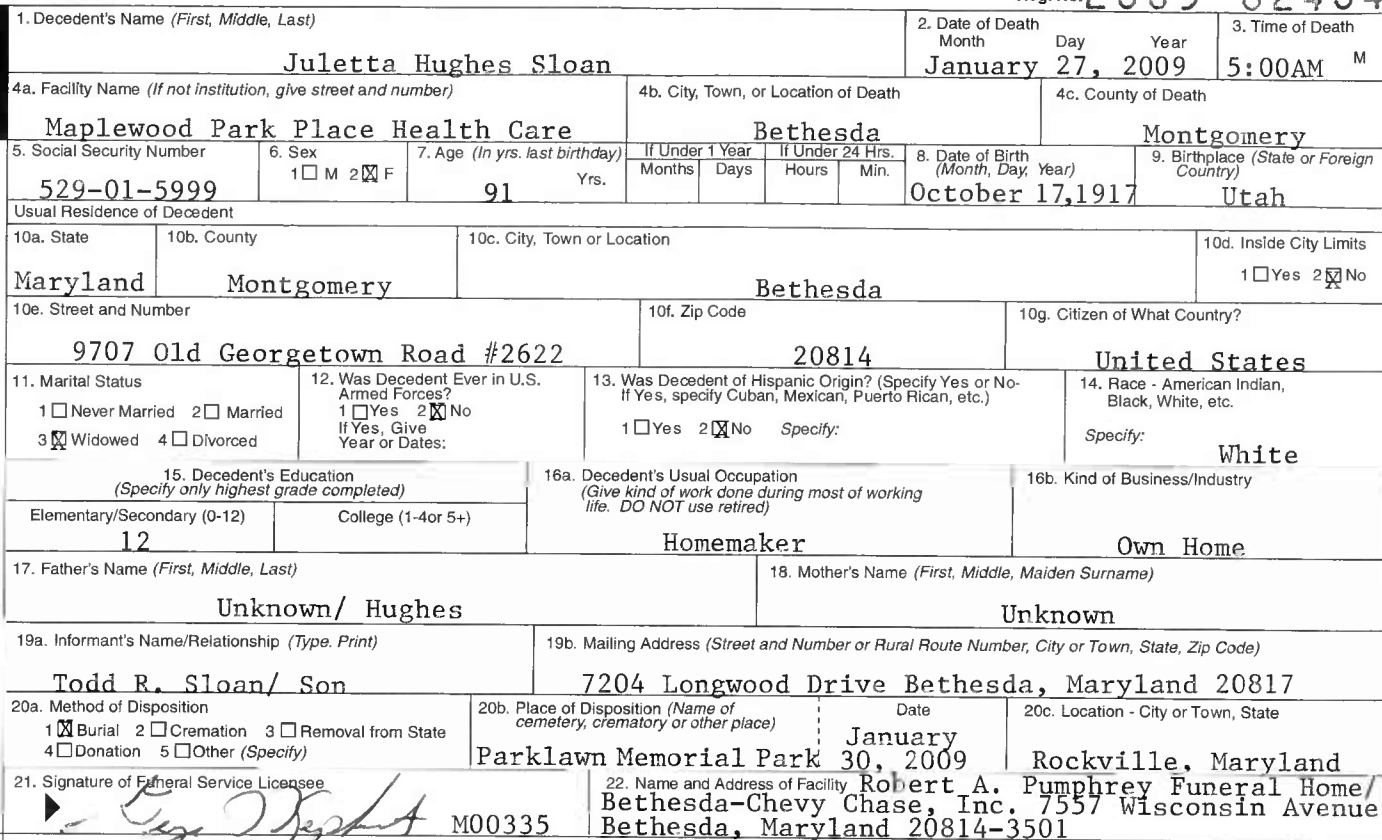 1. Decedent's Name (First, Middle, Last)
Juletta Hughes Sloan
2. Date of Death
Month Day Year
January 27, 2009
3. Time of Death
5:00AM M
4a. Facility Name (If not institution, give street and number)
Maplewood Park Place Health Care
4b. City, Town, or Location of Death
Bethesda
4c. County of Death
Montgomery
5. Social Security Number
529-01-5999
6. Sex
1☐ M 2☒ F
7. Age (In yrs. last birthday)
91 Yrs.
If Under 1 Year
Months Days
If Under 24 Hrs.
Hours Min.
8. Date of Birth
(Month, Day, Year)
October 17,1917
9. Birthplace (State or Foreign
Country)
Utah
Usual Residence of Decedent
10a. State
Maryland
10b. County
Montgomery
10c. City, Town or Location
Bethesda
10d. Inside City Limits
1☐Yes 2☒No
10e. Street and Number
9707 Old Georgetown Road #2622
10f. Zip Code
20814
10g. Citizen of What Country?
United States
11. Marital Status
1☐Never Married 2☐ Married
3☒Widowed 4☐Divorced
12. Was Decedent Ever in U.S.
Armed Forces?
1☐Yes 2☒No
If Yes, Give
Year or Dates:
13. Was Decedent of Hispanic Origin? (Specify Yes or No-
If Yes, specify Cuban, Mexican, Puerto Rican, etc.)
1☐Yes 2☒No Specify:
14. Race - American Indian,
Black, White, etc.
Specify:
White
15. Decedent's Education
(Specify only highest grade completed)
Elementary/Secondary (0-12)
12
College (1-4or 5+)
16a. Decedent's Usual Occupation
(Give kind of work done during most of working
life. DO NOT use retired)
Homemaker
16b. Kind of Business/Industry
Own Home
17. Father's Name (First, Middle, Last)
Unknown/ Hughes
18. Mother's Name (First, Middle, Maiden Surname)
Unknown
19a. Informant's Name/Relationship (Type. Print)
Todd R. Sloan/ Son
19b. Mailing Address (Street and Number or Rural Route Number, City or Town, State, Zip Code)
7204 Longwood Drive Bethesda, Maryland 20817
20a. Method of Disposition
1☒Burial 2☐Cremation 3☐Removal from State
4☐Donation 5☐Other (Specify)
20b. Place of Disposition (Name of
cemetery, crematory or other place)
Parklawn Memorial Park
Date
January
30, 2009
20c. Location - City or Town, State
Rockville, Maryland
21. Signature of Funeral Service Licensee
M00335
22. Name and Address of Facility Robert A. Pumphrey Funeral Home/
Bethesda-Chevy Chase, Inc. 7557 Wisconsin Avenue
Bethesda, Maryland 20814-3501